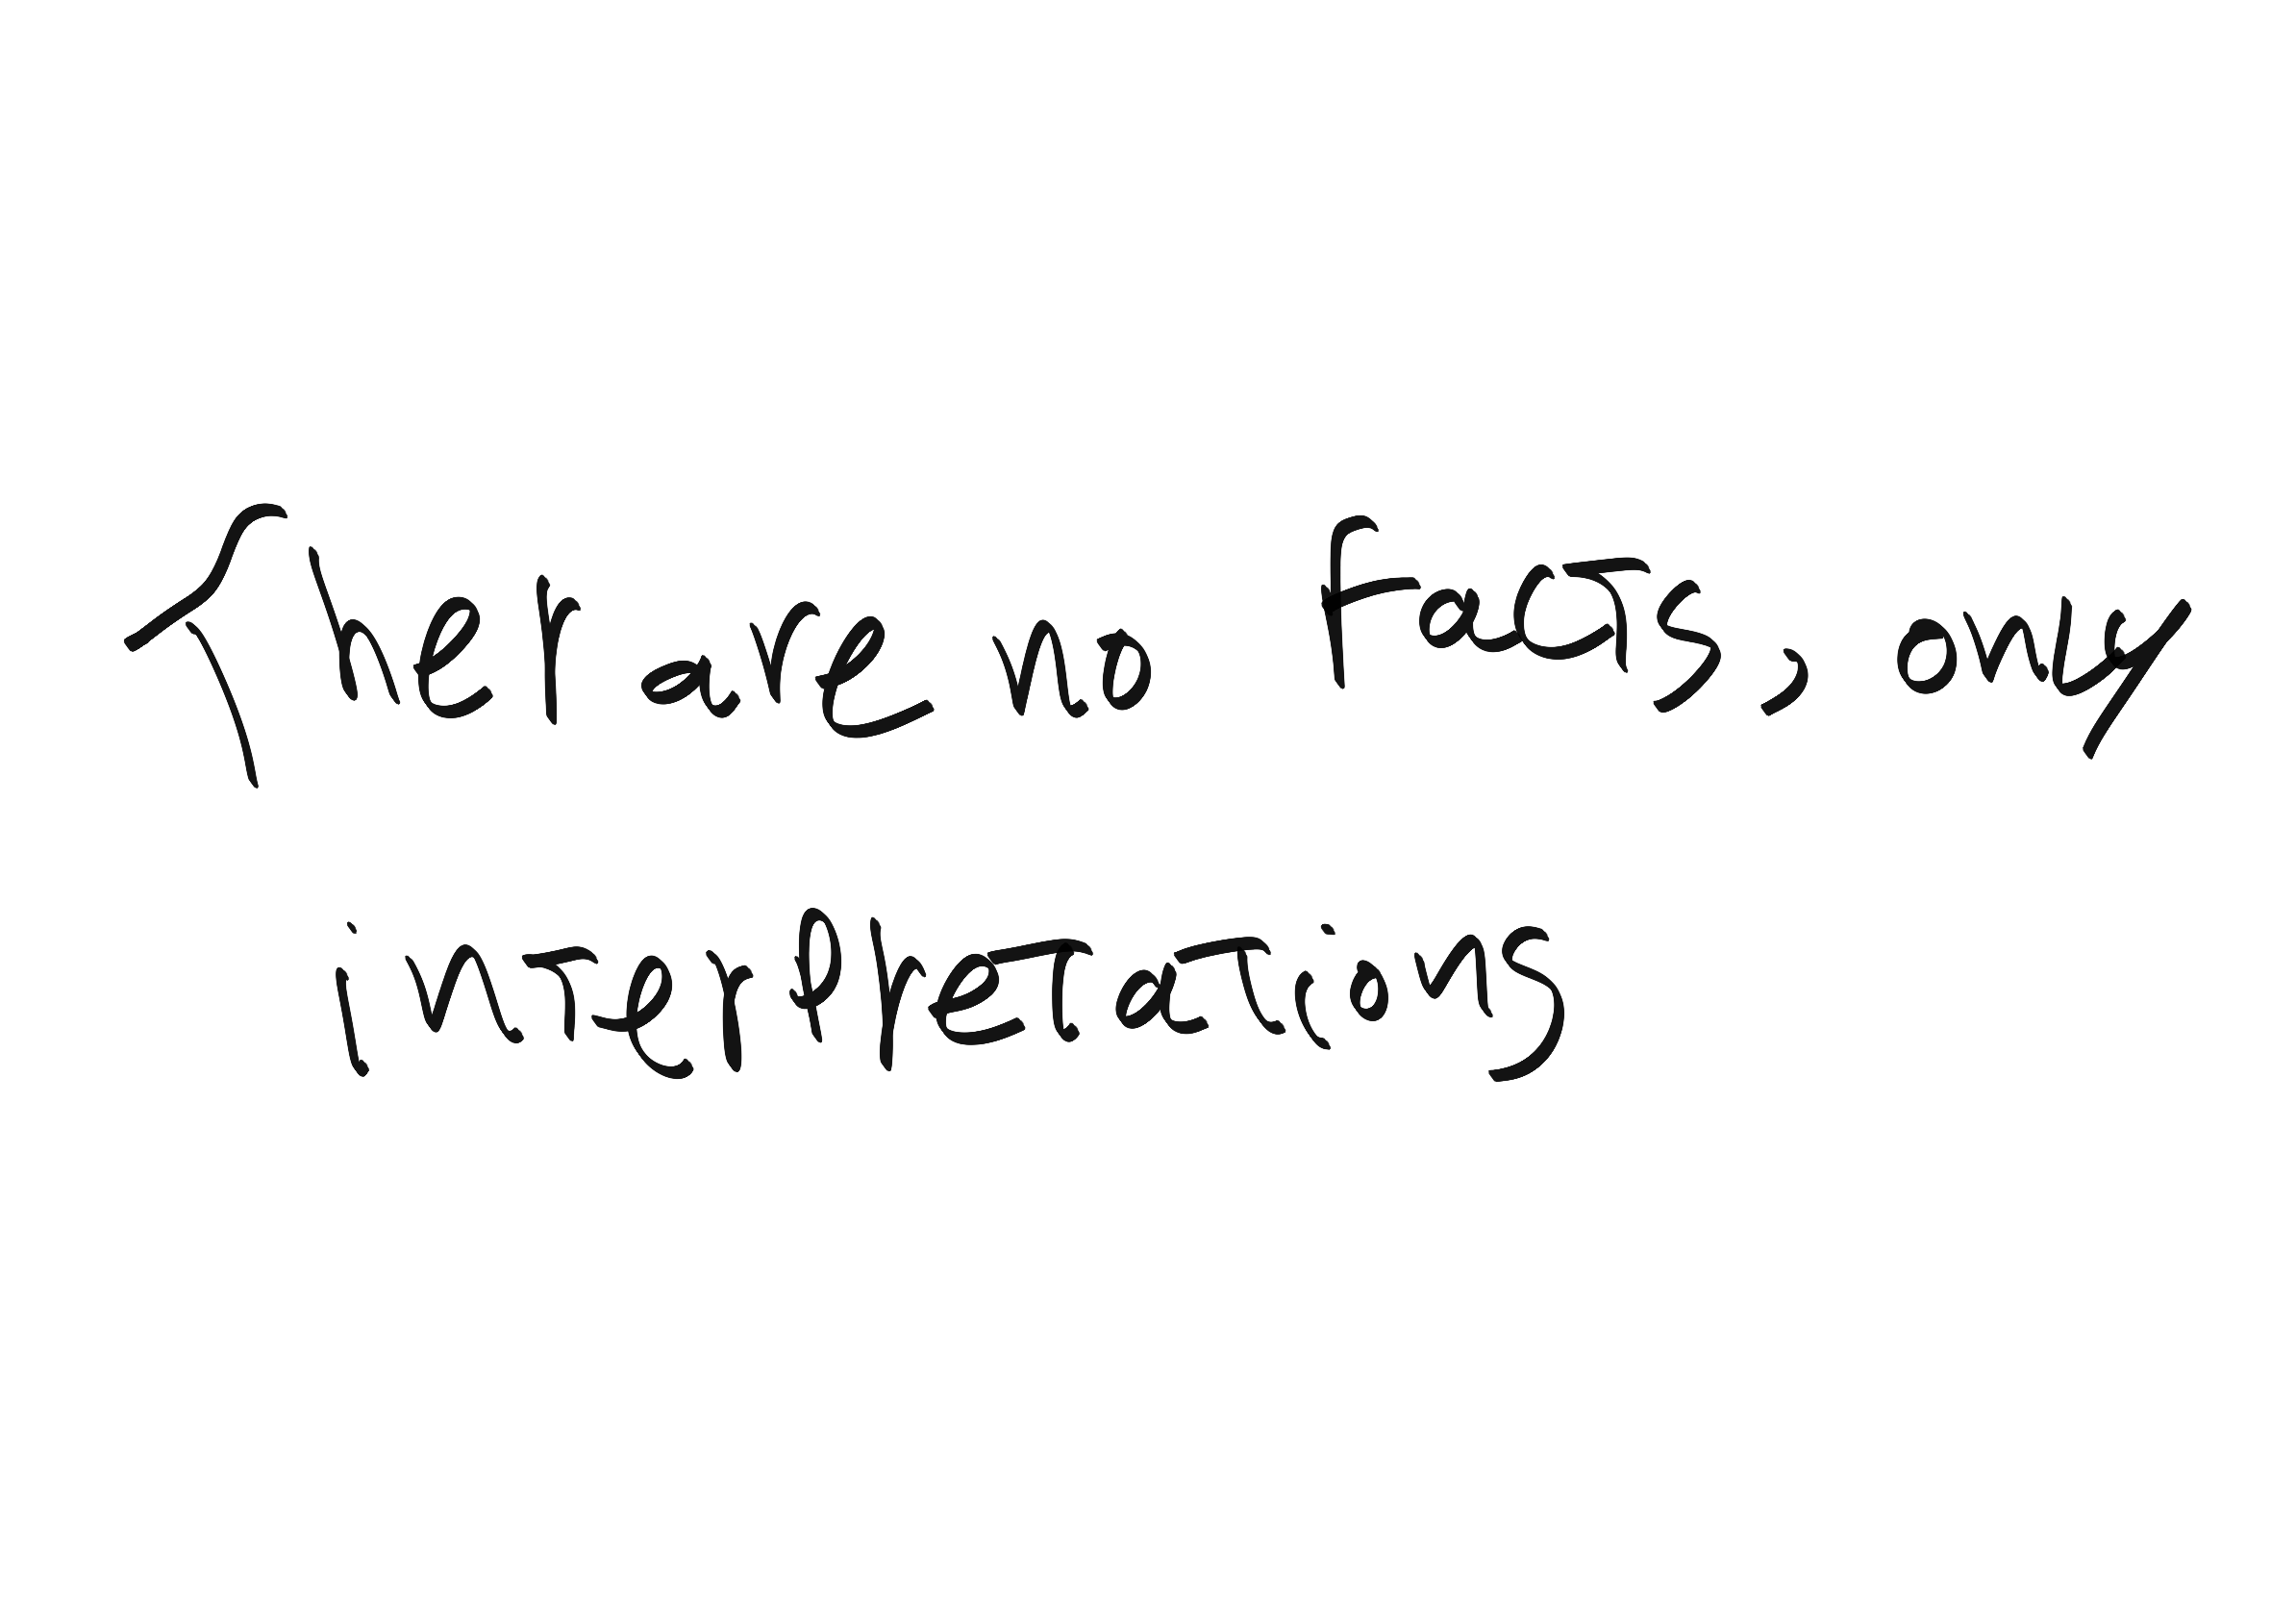 Ther are no facts, only
interpretations